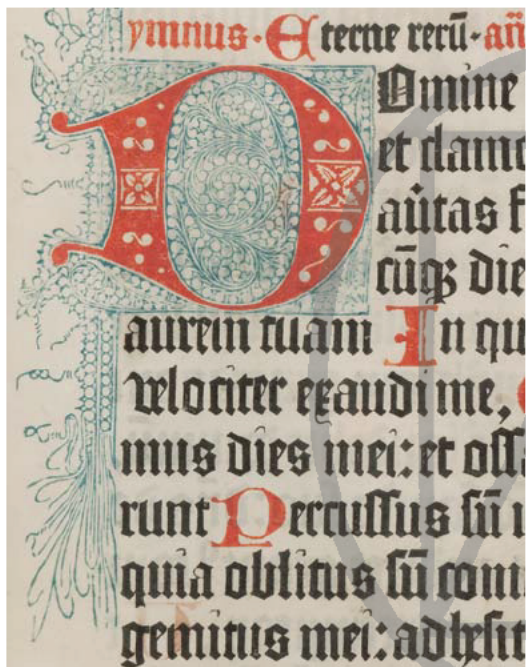 ymnus · Eterne rerū · añ
DOmine
et clamo
aūtas f
cūqꝫ die
aurem tuam In qu
velociter exaudi me,
mus dies mei: et oss
runt Percussus sū
quia oblitus sū com
gemitus mei: adhesit